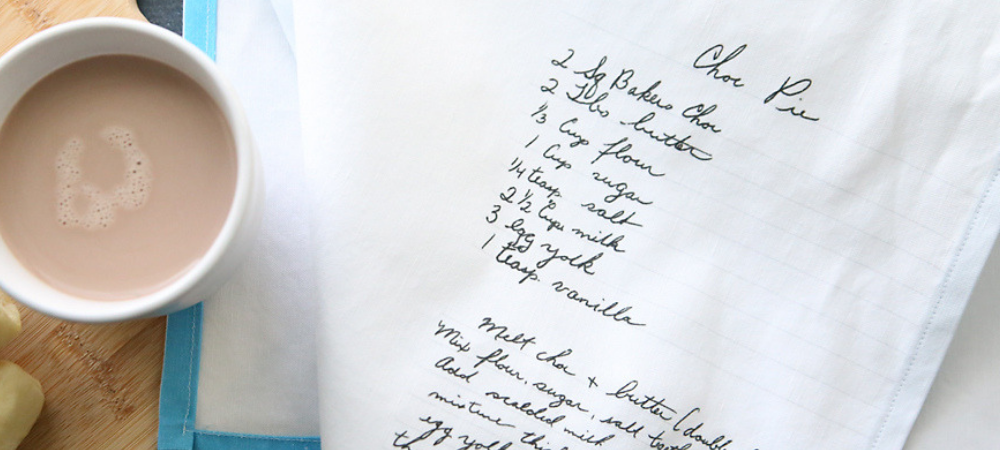 Choc Pie
2 Sq Bakers Choc
2 Tbs butter
1/3 Cup flour
1 Cup sugar
1/4 teasp. salt
2 1/2 Cups milk
3 egg yolk
1 teasp. vanilla
Melt choc + butter (double
Mix flour, sugar, salt
Add scalded milk
mixture
egg yolk